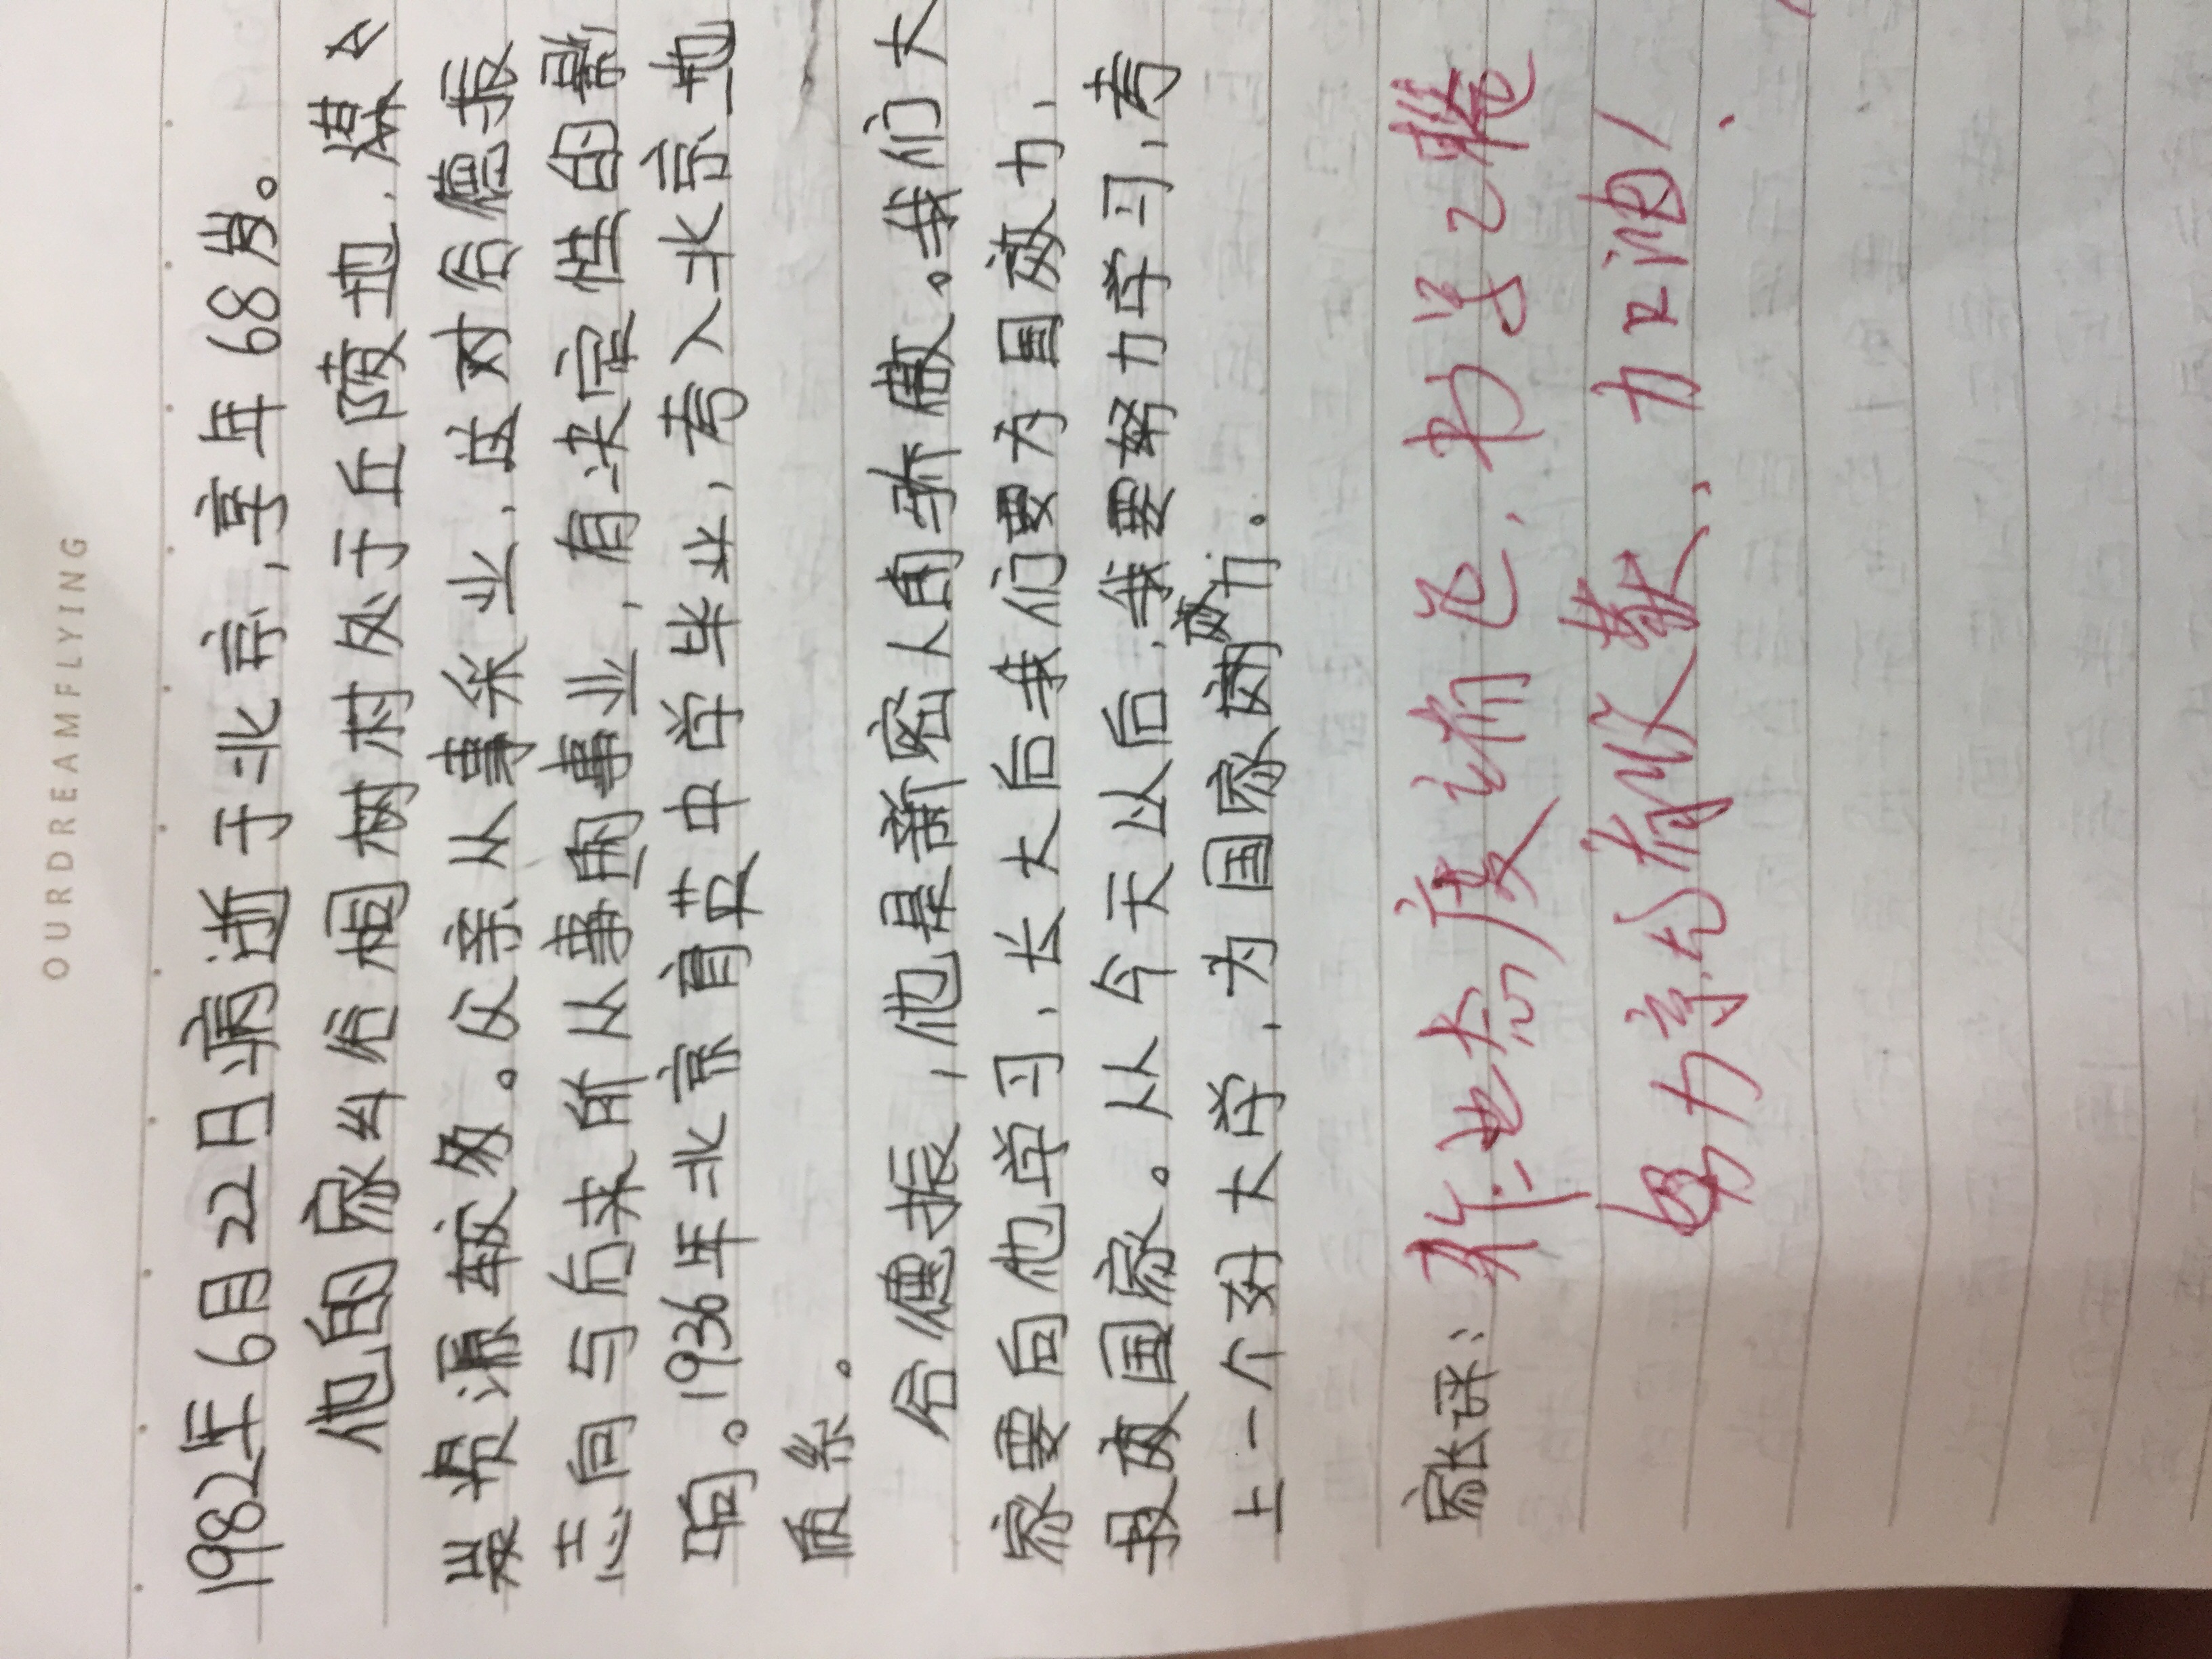 OURDREAMFLYING
1982年6月22日病逝于北京,享年68岁。
他的家乡谷梱树村处于丘陵地,煤
炭资源较多。父亲从事采业,这对谷德振
志向与后来所从事的事业,有决定性的影
响。1936年北京育英中学毕业,考入北京地
质系。
谷德振,他是新密人的骄傲。我们大
家要向他学习,长大后我们要为国效力,
报效国家。从今天以后,我要努力学习,考
上一个好大学,为国家效力。
家长评:作业态度端正,书写工整
努力就会有收获,加油!